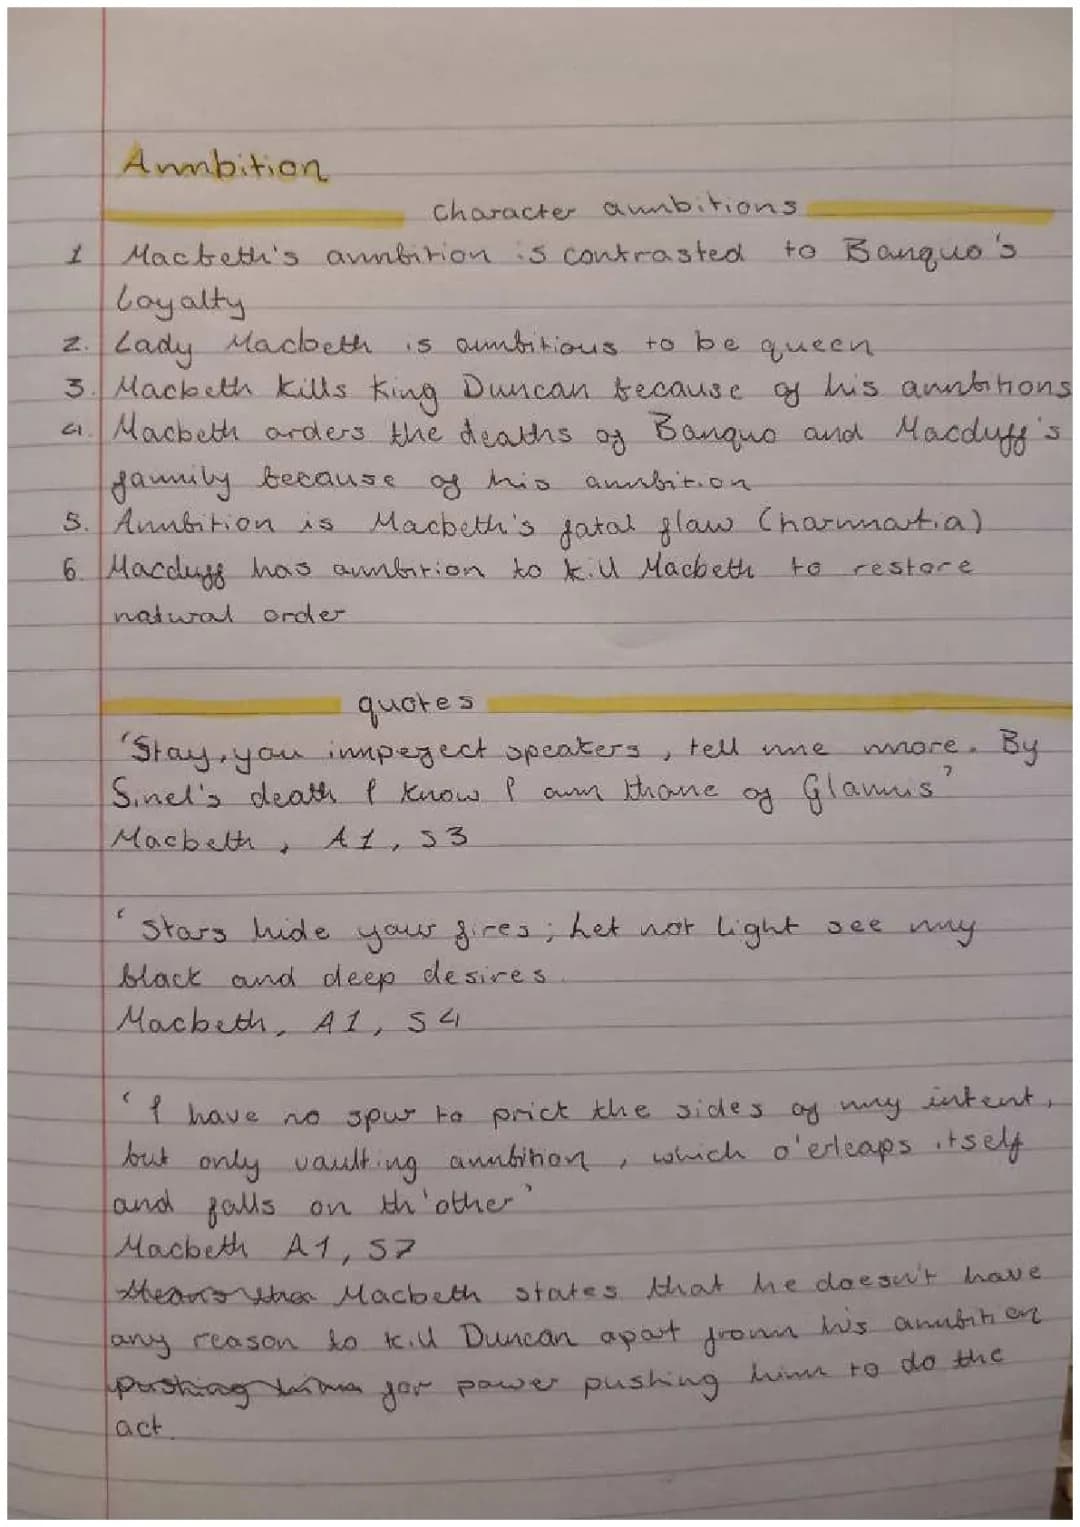 Ambition
Character ambitions
1 Macbeth's ambition is contrasted to Banquo's
loyalty
2. Lady Macbeth is ambitious to be queen
3. Macbeth kills King Duncan because of his ambitions
4. Macbeth orders the deaths of Banquo and Macduff's
family because of his ambition
5. Ambition is Macbeth's fatal flaw (harmartia)
6. Macduff has ambition to kill Macbeth to restore
natural order
quotes
'Stay, you imperfect speakers, tell me more. By
Sinel's death I know I am thane of Glamis'
Macbeth, A1, S3
'Stars hide your fires; Let not light see my
black and deep desires.
Macbeth, A1, S4
'I have no spur to prick the sides of my intent,
but only vaulting ambition, which o'erleaps itself
and falls on th'other'
Macbeth A1, S7
Macbeth states that he doesn't have
any reason to kill Duncan apart from his ambition
pushing him for power pushing him to do the
act.